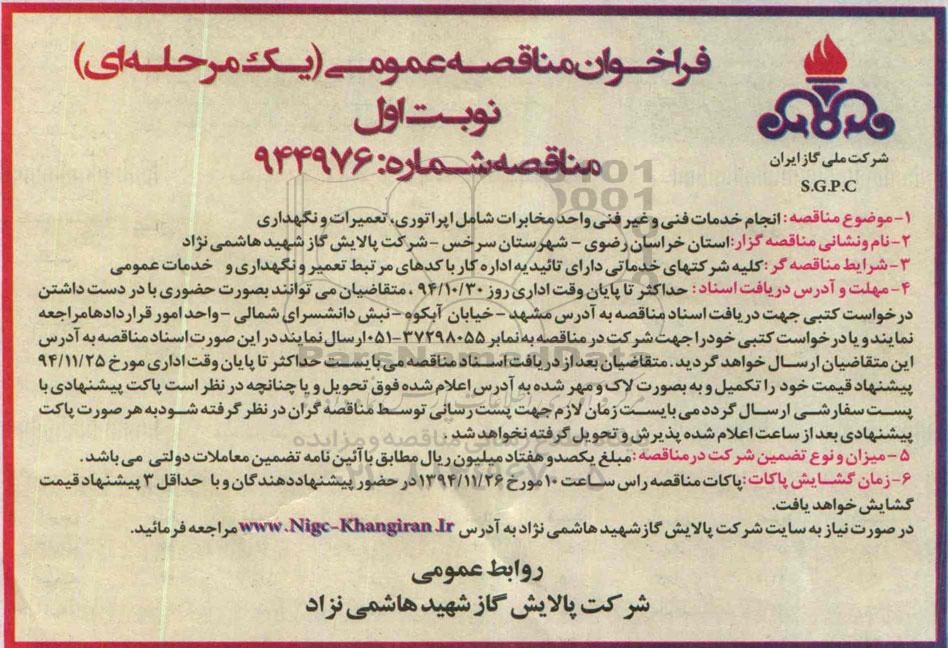 فراخوان مناقصه عمومی (یک مرحله‌ای)
نوبت اول
مناقصه شماره: ۹۴۴۹۷۶
شرکت ملی گاز ایران
S.G.P.C
۱- موضوع مناقصه: انجام خدمات فنی و غیر فنی واحد مخابرات شامل اپراتوری، تعمیرات و نگهداری
۲- نام ونشانی مناقصه گزار: استان خراسان رضوی - شهرستان سرخس - شرکت پالایش گاز شهید هاشمی نژاد
۳- شرایط مناقصه گر: کلیه شرکتهای خدماتی دارای تائیدیه اداره کار با کدهای مرتبط تعمیر و نگهداری و خدمات عمومی
۴- مهلت و آدرس دریافت اسناد: حداکثر تا پایان وقت اداری روز ۹۴/۱۰/۳۰ ، متقاضیان می توانند بصورت حضوری با در دست داشتن
درخواست کتبی جهت دریافت اسناد مناقصه به آدرس مشهد - خیابان آبکوه - نبش دانشسرای شمالی - واحد امور قراردادها مراجعه
نمایند و یا درخواست کتبی خود را جهت شرکت در مناقصه به نمابر ۳۷۲۹۸۰۵۵-۰۵۱ ارسال نمایند در این صورت اسناد مناقصه به آدرس
این متقاضیان ارسال خواهد گردید. متقاضیان بعد از دریافت اسناد مناقصه می بایست حداکثر تا پایان وقت اداری مورخ ۹۴/۱۱/۲۵
پیشنهاد قیمت خود را تکمیل و به بصورت لاک و مهر شده به آدرس اعلام شده فوق تحویل و یا چنانچه در نظر است پاکت پیشنهادی با
پست سفارشی ارسال گردد می بایست زمان لازم جهت پست رسانی توسط مناقصه گران در نظر گرفته شود به هر صورت پاکت
پیشنهادی بعد از ساعت اعلام شده پذیرش و تحویل گرفته نخواهد شد.
۵- میزان و نوع تضمین شرکت در مناقصه: مبلغ یکصد و هفتاد میلیون ریال مطابق با آئین نامه تضمین معاملات دولتی می باشد.
۶- زمان گشایش پاکات: پاکات مناقصه راس ساعت ۱۰ مورخ ۱۳۹۴/۱۱/۲۶ در حضور پیشنهاددهندگان و با حداقل ۳ پیشنهاد قیمت
گشایش خواهد یافت.
در صورت نیاز به سایت شرکت پالایش گاز شهید هاشمی نژاد به آدرس www.Nigc-Khangiran.Ir مراجعه فرمائید.
روابط عمومی
شرکت پالایش گاز شهید هاشمی نژاد
ParsNamadData